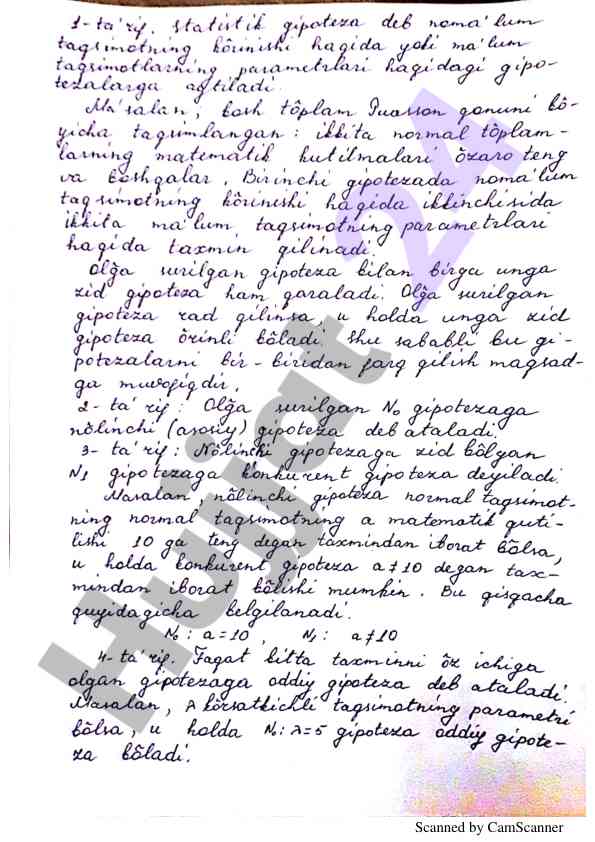 1-ta'rif. Statistik gipoteza deb noma'lum
taqsimotning kôrinishi haqida yoki ma'lum
taqsimotlarning parametrlari haqidagi gipo-
tezalarga aytiladi.
Masalan, bosh tôplam Puasson qonuni bô-
yicha taqsimlangan: ikkita normal tôplam-
larning matematik kutilmalari ôzaro teng
va boshqalar. Birinchi gipotezada noma'lum
taqsimotning kôrinishi haqida ikkinchisida
ikkita ma'lum taqsimotning parametrlari
haqida taxmin qilinadi.
Olğa surilgan gipoteza bilan birga unga
zid gipoteza ham qaraladi. Olğa surilgan
gipoteza rad qilinsa, u holda unga zid
gipoteza ôrinli bôladi. Shu sababli bu gi-
potezalarni bir-biridan farq qilish maqsad-
ga muvofiqdir.
2-ta'rif: Olğa surilgan N₀ gipotezaga
nôlinchi (asosiy) gipoteza deb ataladi.
3-ta'rif: Nôlinchi gipotezaga zid bôlgan
N₁ gipotezaga konkurent gipoteza deyiladi.
Masalan, nôlinchi gipoteza normal taqsimot-
ning normal taqsimotning a matematik quti-
lishi 10 ga teng degan taxmindan iborat bôlsa,
u holda konkurent gipoteza a≠10 degan tax-
mindan iborat bôlishi mumkin. Bu qisqacha
quyidagicha belgilanadi.
N₀: a=10, N₁: a≠10
4-ta'rif. Faqat bitta taxminni ôz ichiga
olgan gipotezaga oddiy gipoteza deb ataladi.
Masalan, λ kôrsatkichli taqsimotning parametri
bôlsa, u holda N₀: λ=5 gipoteza oddiy gipote-
za bôladi.
Hujjat 24
Scanned by CamScanner